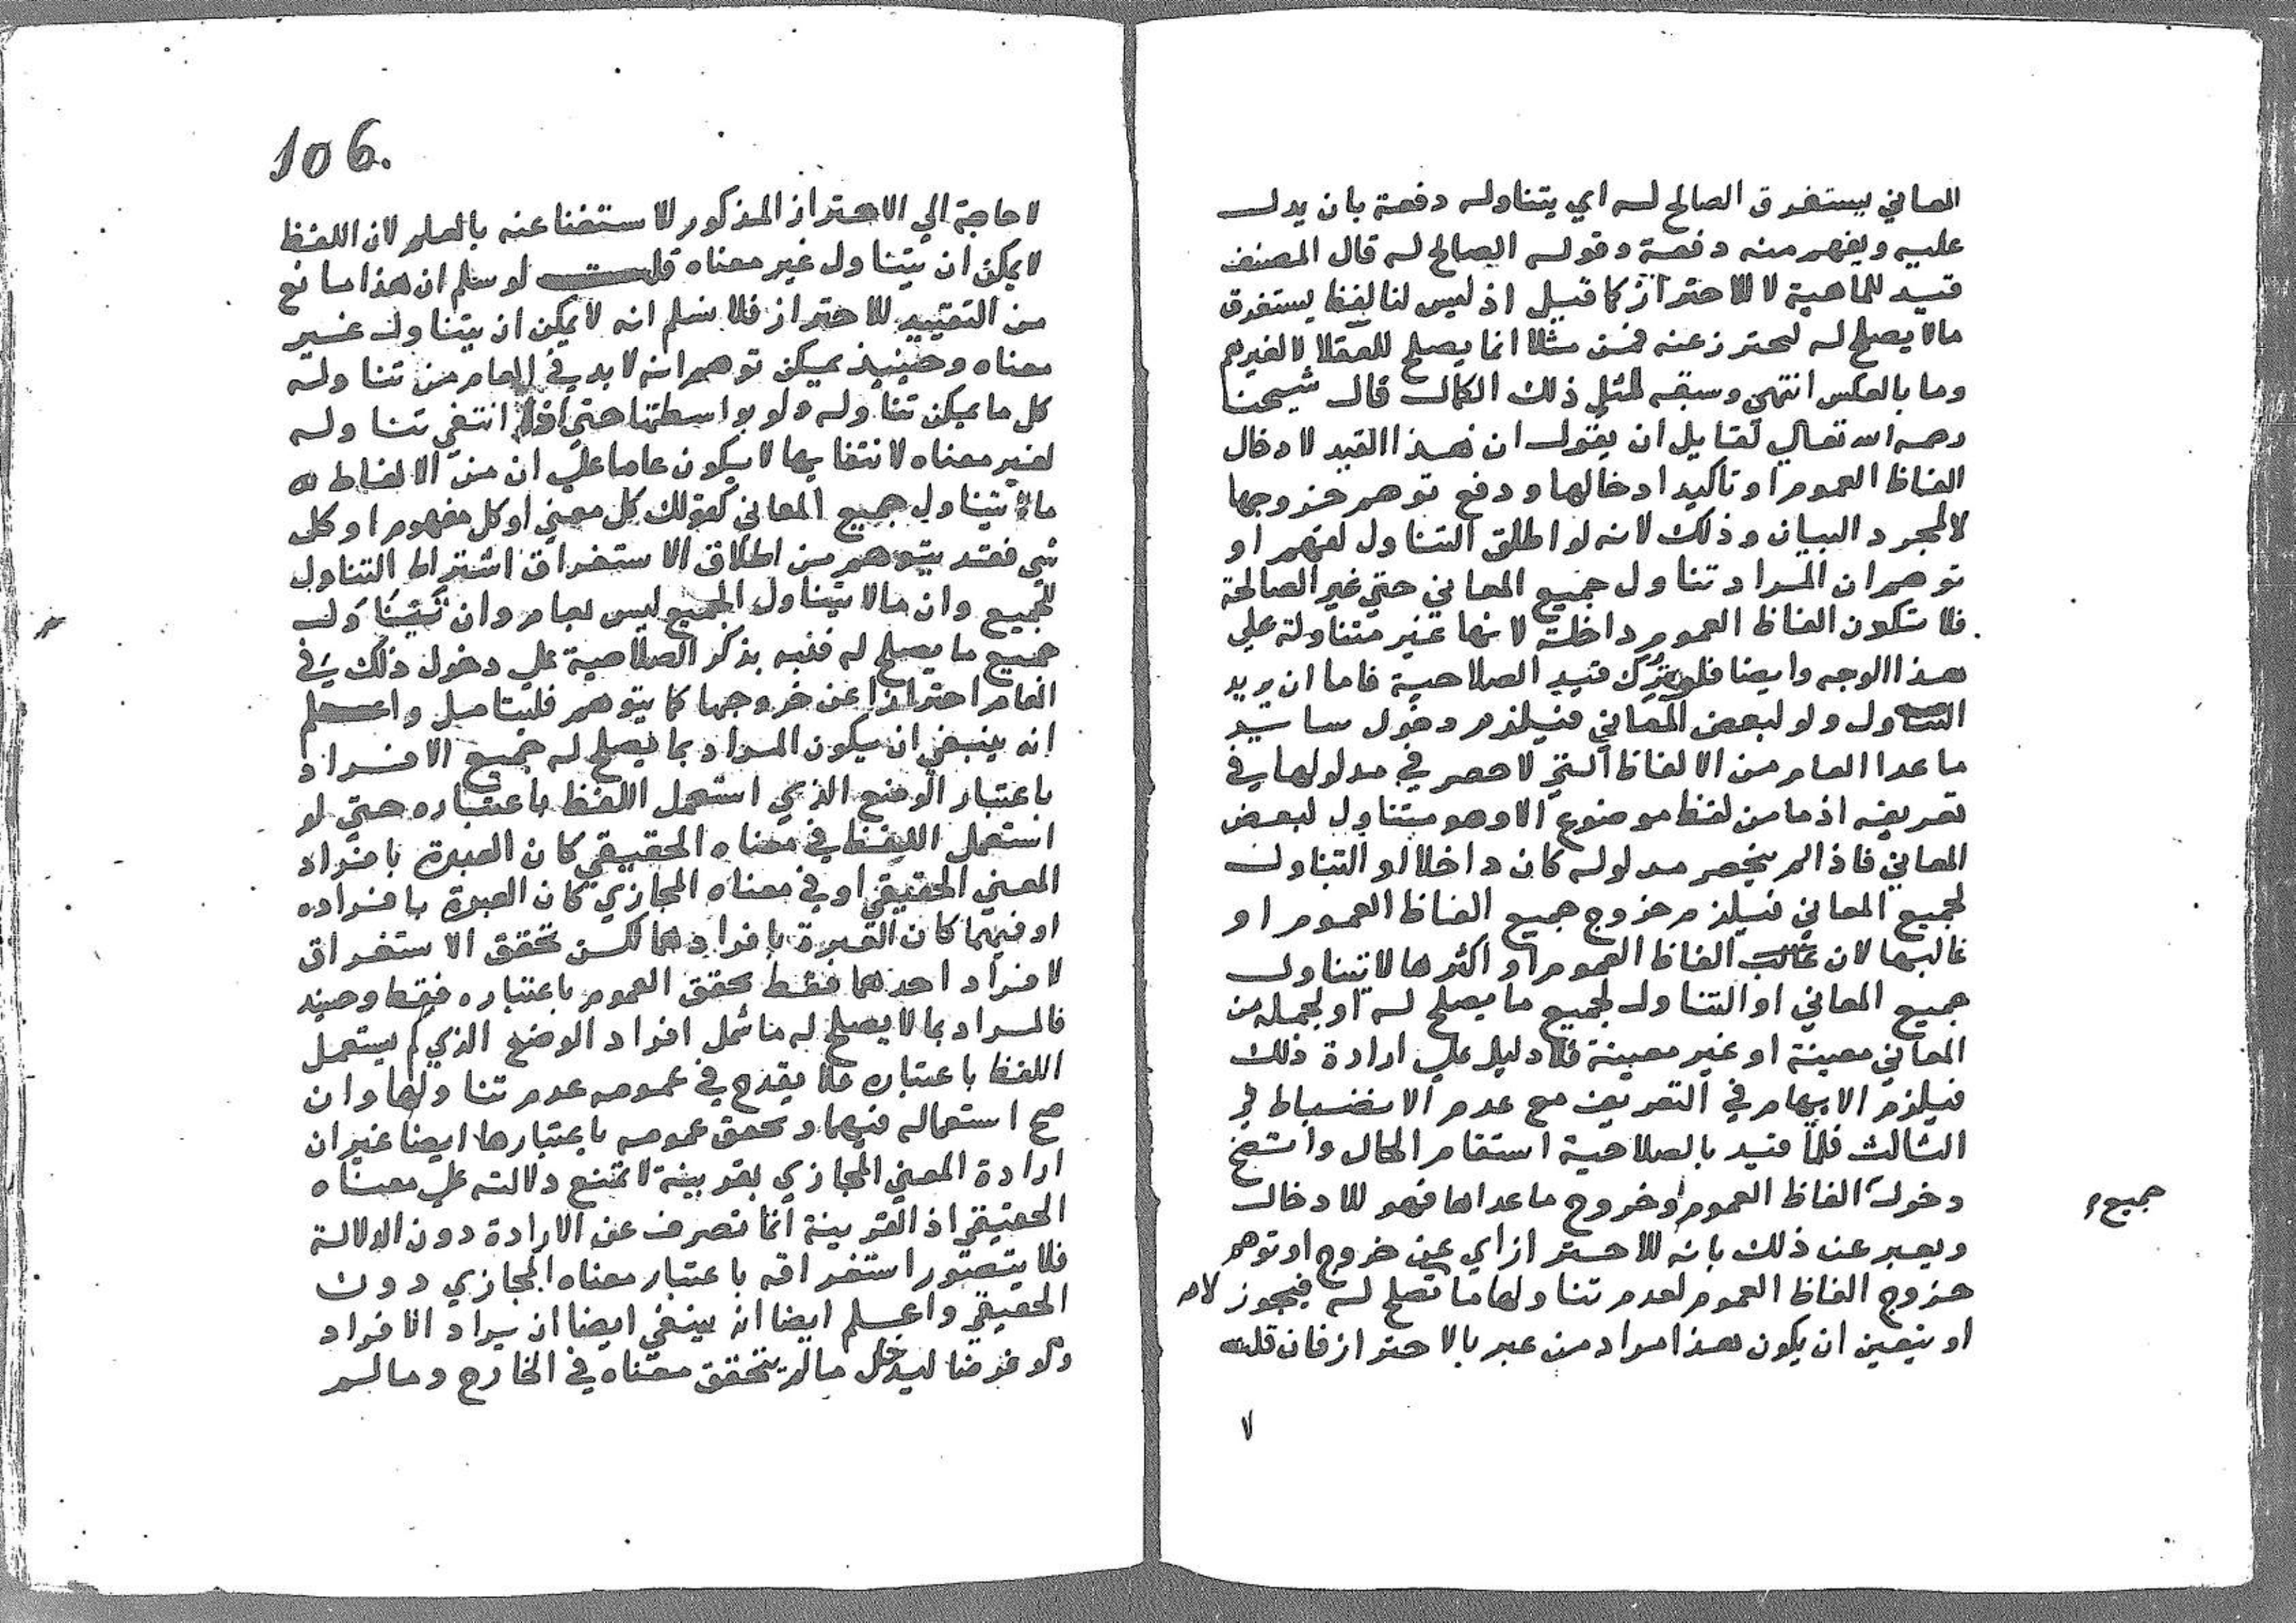 المعاني يستغرق الصالح له اي يتناوله دفعة بان يدل
عليه ويفهم منه دفعة وقوله الصالح له قال المصنف
قيد للماهية لا للاحتراز كما قيل اذ ليس لنا لفظ يستغرق
مالا يصلح له ليحترز عنه فمن مثلا انما يصلح للعقلا لا لغيرهم
وما بالعكس انتهي وسبقه لمثل ذلك الكمال قال شيخنا
رحمه الله تعالي لقايل ان يقول ان هذا القيد لادخال
الفاظ العموم او تاكيد ادخالها ودفع توهم خروجها
لا لمجرد البيان وذلك لانه لو اطلق التناول لفهم او
توهم ان المراد تناول جميع المعاني حتي غير الصالحة
فلا تكون الفاظ العموم داخلة لانها غير متناولة علي
هذا الوجه وايضا فلو ترك قيد الصلاحية فاما ان يريد
التناول ولو لبعض المعاني فيلزم دخول ساير
ما عدا العام من الالفاظ التي لا حصر في مدلولها في
تعريفه اذ ما من لفظ موضوع الا وهو متناول لبعض
المعاني فاذا لم ينحصر مدلوله كان داخلا او التناول
لجميع المعاني فيلزم خروج جميع الفاظ العموم او
غالبها لان غالب الفاظ العموم او اكثرها لا تتناول
جميع المعاني او التناول لجميع ما يصلح له او لجملة من
المعاني معينة او غير معينة فلا دليل علي ارادة ذلك
فيلزم الابهام في التعريف مع عدم الانضباط في
الثالث فلما قيد بالصلاحية استقام الحال واتضح
دخول الفاظ العموم وخروج ما عداها فهو للادخال
جميع
ويعبر عن ذلك بانه للاحتراز اي عن خروج او توهم
خروج الفاظ العموم لعدم تناولها ما تصلح له فيجوز
او يتعين ان يكون هذا مراد من عبر بالاحتراز فان قلت
لا
106.
لا حاجة الي الاحتراز المذكور للاستغنا عنه بالعلم لان اللفظ
لا يمكن ان يتناول غير معناه قلت لو سلم ان هذا مانع
من التقييد للاحتراز فلا نسلم انه لا يمكن ان يتناول غير
معناه وحينيذ يمكن توهم انه لا بد في العام من تناوله
كل ما يمكن تناوله ولو بواسطتها حتي اذا انتفي تناوله
لغير معناه لانتفايها لا يكون عاما علي ان من الالفاظ
ما يتناول جميع المعاني كقولك كل معني او كل مفهوم او كل
شي فقد يتوهم من اطلاق الاستغراق اشتراط التناول
للجميع وان مالا يتناول الجميع ليس بعام وان تناول
جميع ما يصلح له فنبه بذكر الصلاحية علي دخول ذلك في
العام احترازا عن خروجها كما يتوهم فليتامل واعلم
انه ينبغي ان يكون المراد بما يصلح له جميع الافراد
باعتبار الوضع الذي استعمل اللفظ باعتباره حتي لو
استعمل اللفظ في معناه الحقيقي كان العبرة بافراد
المعني الحقيقي او في معناه المجازي كان العبرة بافراده
او فيهما كان العبرة بافرادهما لكن تحقق الاستغراق
لافراد احدهما فقط تحقق العموم باعتباره فقط وحينيذ
فالمراد بما لا يصلح له ما شمل افراد الوضع الذي لم يستعمل
اللفظ باعتباره فلا يقدح في عمومه عدم تناولها وان
صح استعماله فيهما وتحقق عمومه باعتبارها ايضا غير ان
ارادة المعني المجازي بقرينة لا تمنع دلالته علي معناه
الحقيقي اذ القرينة انما تصرف عن الارادة دون الدلالة
فلا يتصور استغراقه باعتبار معناه المجازي دون
الحقيقي واعلم ايضا انه ينبغي ايضا ان يراد الافراد
ولو فرضا ليدخل مالم يتحقق معناه في الخارج ومالم